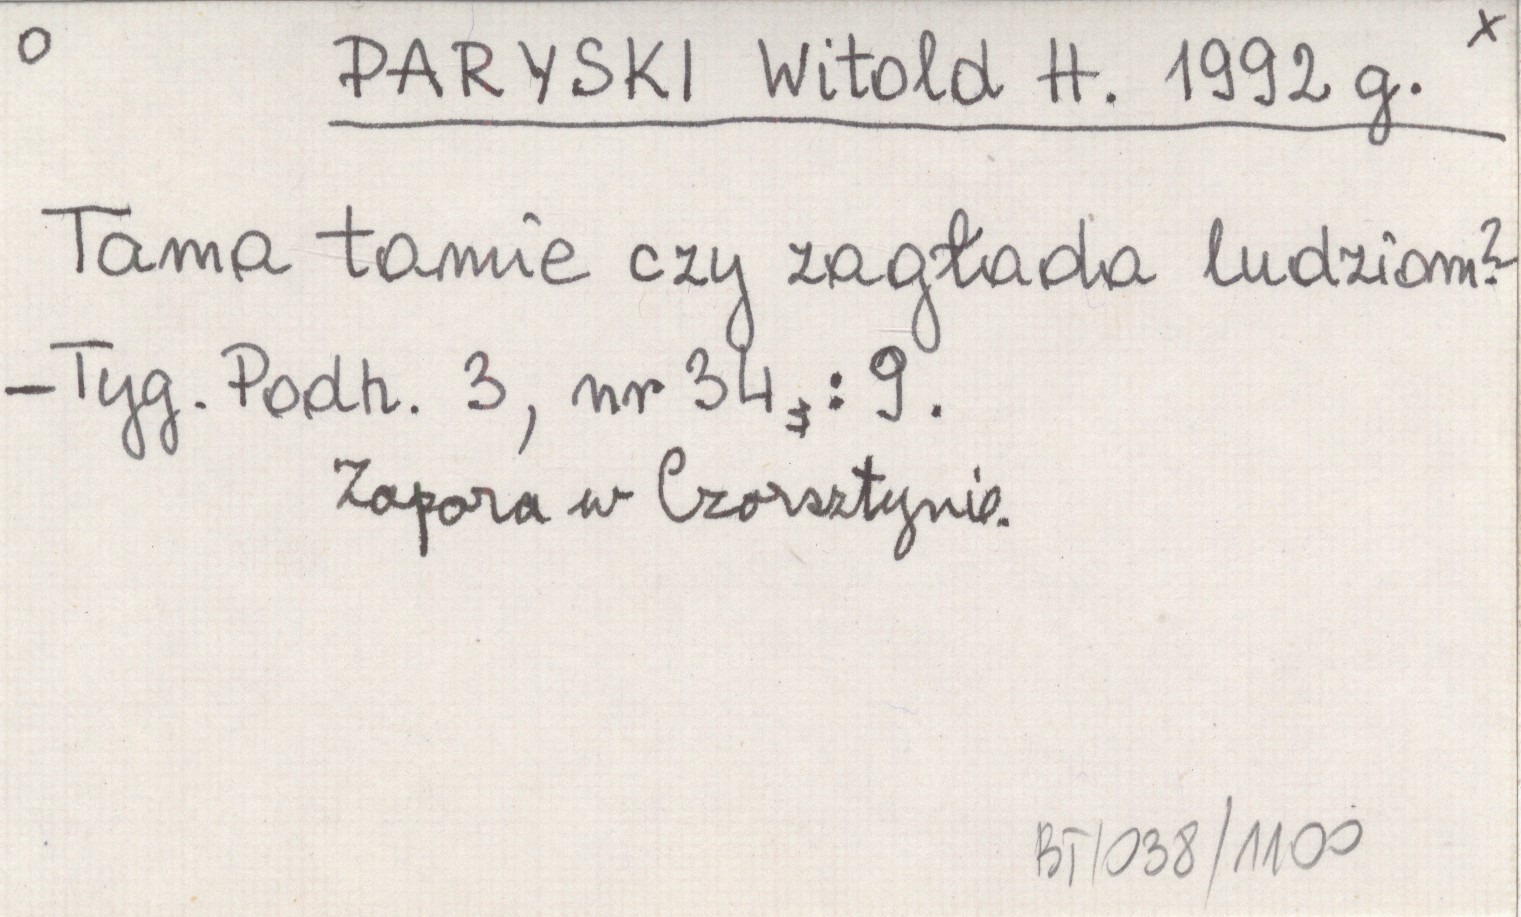 o PARYSKI Witold H. 1992 g. x
Tama tamie czy zagłada ludziom?
– Tyg. Podh. 3, nr 34 : 9.
Zapora w Czorsztynie.
BT/038/1100